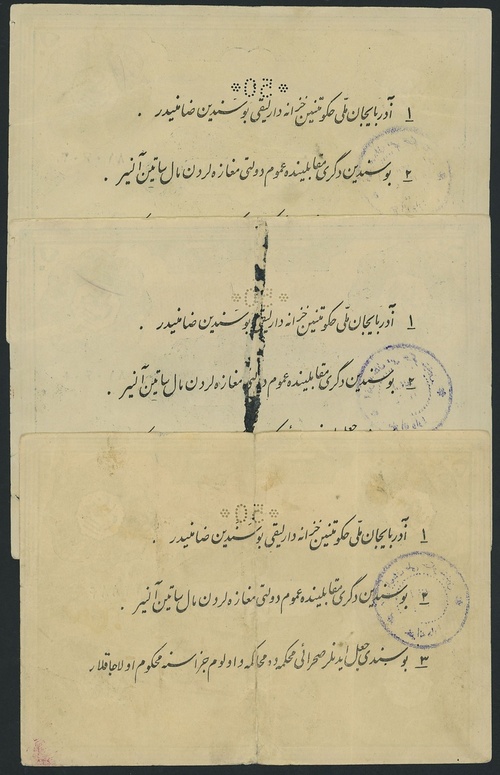 *50*
١ آذربایجان ملی حکومتنین خزانه دارلیقی بو سندین ضامنیدر .
٢ بو سندین دگری مقابلینده عموم دولتی مغازه لردن مال ساتین آلنیر .
*50*
١ آذربایجان ملی حکومتنین خزانه دارلیقی بو سندین ضامنیدر .
٢ بو سندین دگری مقابلینده عموم دولتی مغازه لردن مال ساتین آلنیر .
*50*
١ آذربایجان ملی حکومتنین خزانه دارلیقی بو سندین ضامنیدر .
٢ بو سندین دگری مقابلینده عموم دولتی مغازه لردن مال ساتین آلنیر .
٣ بو سندی جعل ایدنلر صحرائی محکمه ده محاکمه و اولوم جزاسنه محکوم اولاجاقلار